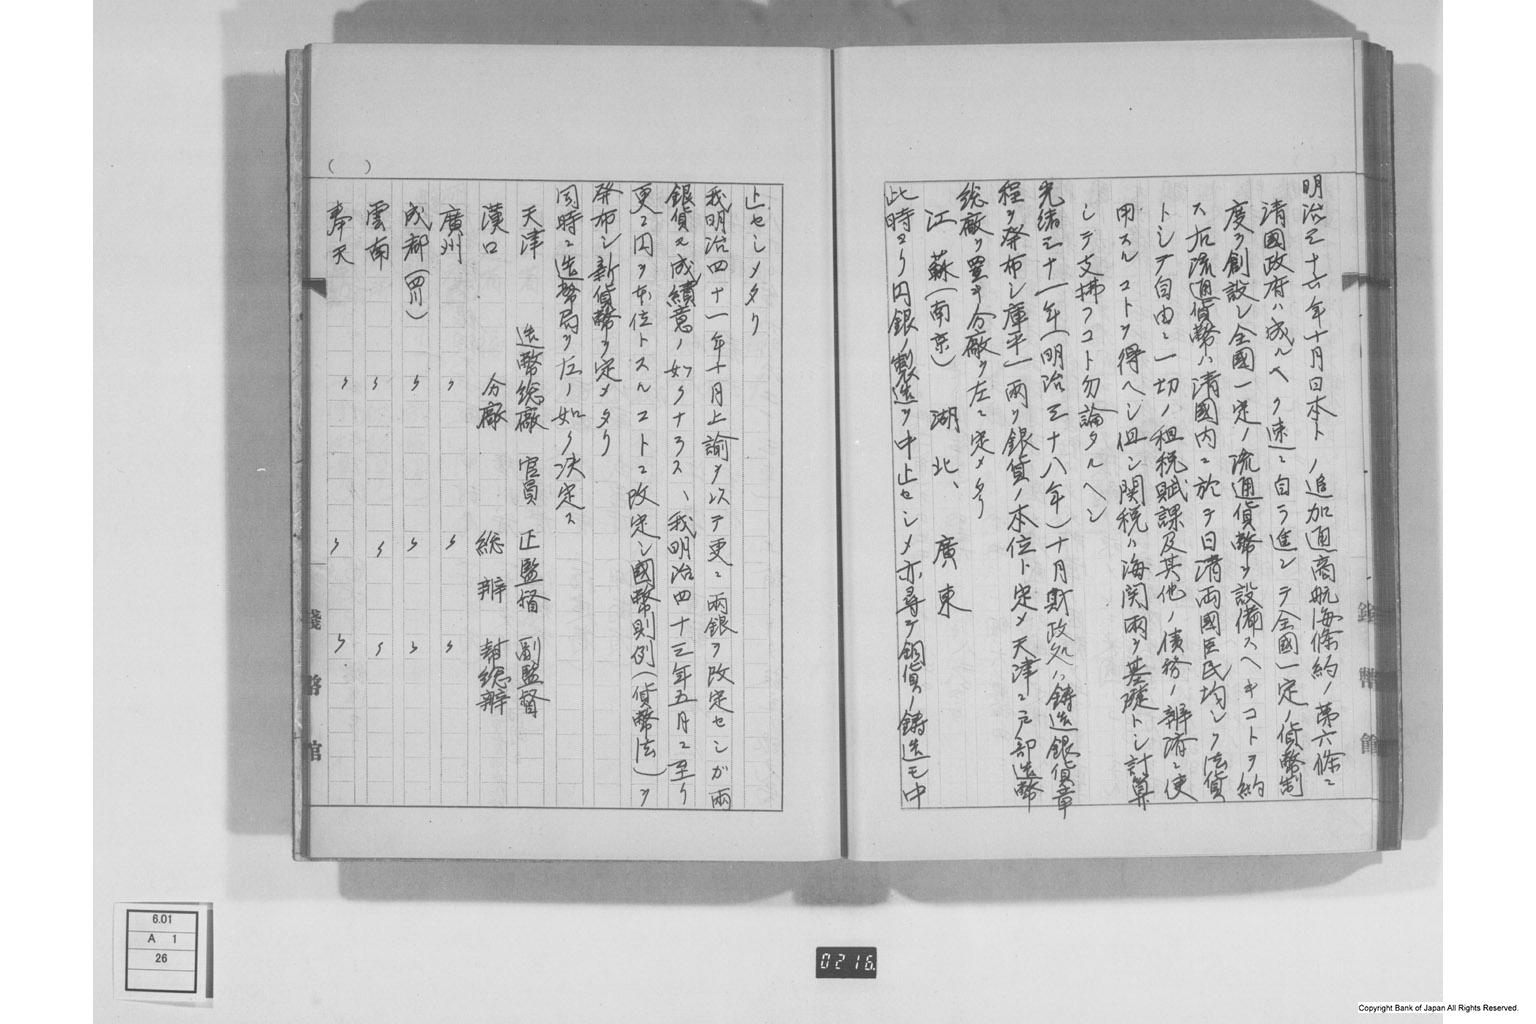 明治三十六年十月日本トノ追加通商航海條約ノ第六條ニ
清國政府ハ成ルヘク速ニ自ラ進ンテ全國一定ノ貨幣制
度ヲ創設シ全國一定ノ流通貨幣ヲ設備スヘキコトヲ約
ス右流通貨幣ハ清國内ニ於テ日清両國臣民均シク法貨
トシテ自由ニ一切ノ租税賦課及其他ノ債務ノ辨済ニ使
用スルコトヲ得ヘシ但シ関税ハ海関両ヲ基礎トシ計算
シテ支拂フコト勿論タルヘシ
光緒三十一年(明治三十八年)十月財政処ハ鋳造銀貨章
程ヲ発布シ庫平一両ヲ銀貨ノ本位ト定メ天津ニ戸部造幣
総廠ヲ置キ分廠ヲ左ニ定メタリ
江蘇(南京) 湖北、 廣東
此時ヨリ円銀ノ製造ヲ中止セシメ亦尋テ銅貨ノ鋳造モ中
止セシメタリ
我明治四十一年十月上諭ヲ以テ更ニ両銀ヲ改定セシガ両
銀貨ハ成績意ノ如クナラス、我明治四十三年五月ニ至リ
更ニ円ヲ本位トスルコトニ改定シ國幣則例(貨幣法)ヲ
発布シ新貨幣ヲ定メタリ
同時ニ造幣局ヲ左ノ如ク決定ス
天津 造幣総廠 官員 正監督 副監督
漢口 分廠 総辦 幇総辦
廣州 〃 〃 〃
成都(四川) 〃 〃 〃
雲南 〃 〃 〃
奉天 〃 〃 〃
( )
銭幣館
6.01
A 1
26
0216.
Copyright Bank of Japan All Rights Reserved.